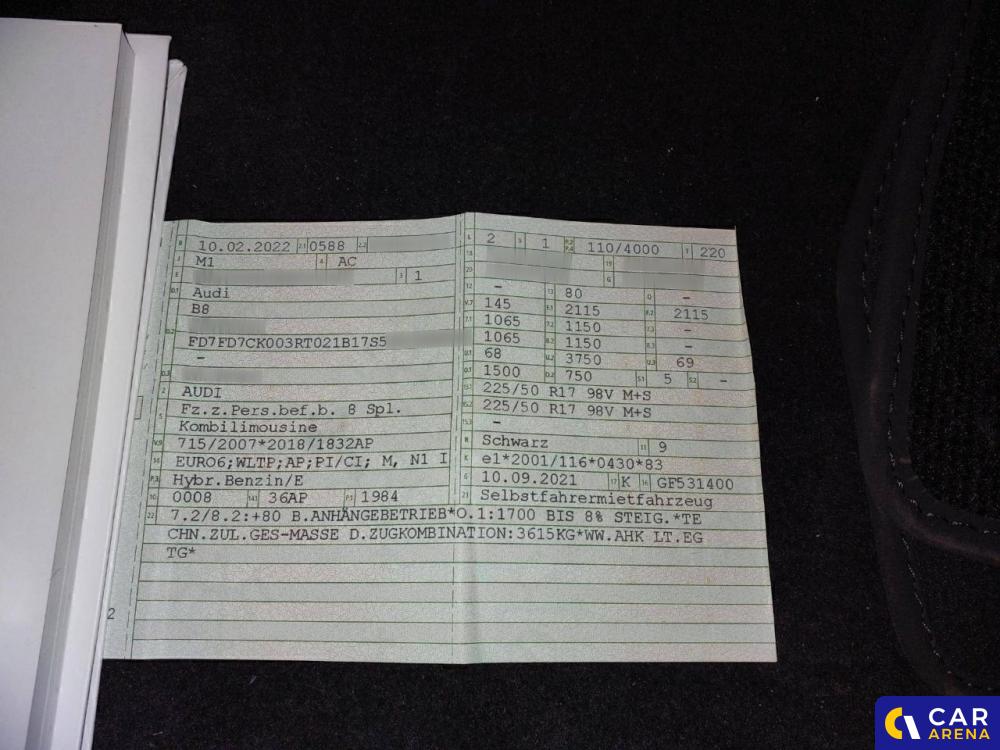 B 10.02.2022 2.1 0588 2.2
J M1 4 AC
E 3 1
D.1 Audi
B8
D.2
FD7FD7CK003RT021B17S5
-
D.3
2 AUDI
5 Fz.z.Pers.bef.b. 8 Spl.
Kombilimousine
V.9 715/2007*2018/1832AP
14 EURO6;WLTP;AP;PI/CI; M, N1 I
P.3 Hybr.Benzin/E
10 0008 14.1 36AP P.1 1984
22 7.2/8.2:+80 B.ANHÄNGEBETRIEB*O.1:1700 BIS 8% STEIG.*TE
CHN.ZUL.GES-MASSE D.ZUGKOMBINATION:3615KG*WW.AHK LT.EG
TG*
L 2 9 1 P.2 P.4 110/4000 T 220
18 19
20 G
12 - 13 80 Q -
V.7 145 F.1 2115 F.2 2115
7.1 1065 7.2 1150 7.3 -
8.1 1065 8.2 1150 8.3 -
U.1 68 U.2 3750 U.3 69
O.1 1500 O.2 750 S.1 5 S.2 -
15.1 225/50 R17 98V M+S
15.2 225/50 R17 98V M+S
15.3 -
R Schwarz 11 9
K e1*2001/116*0430*83
6 10.09.2021 17 K 16 GF531400
21 Selbstfahrermietfahrzeug
2
CAR
ARENA